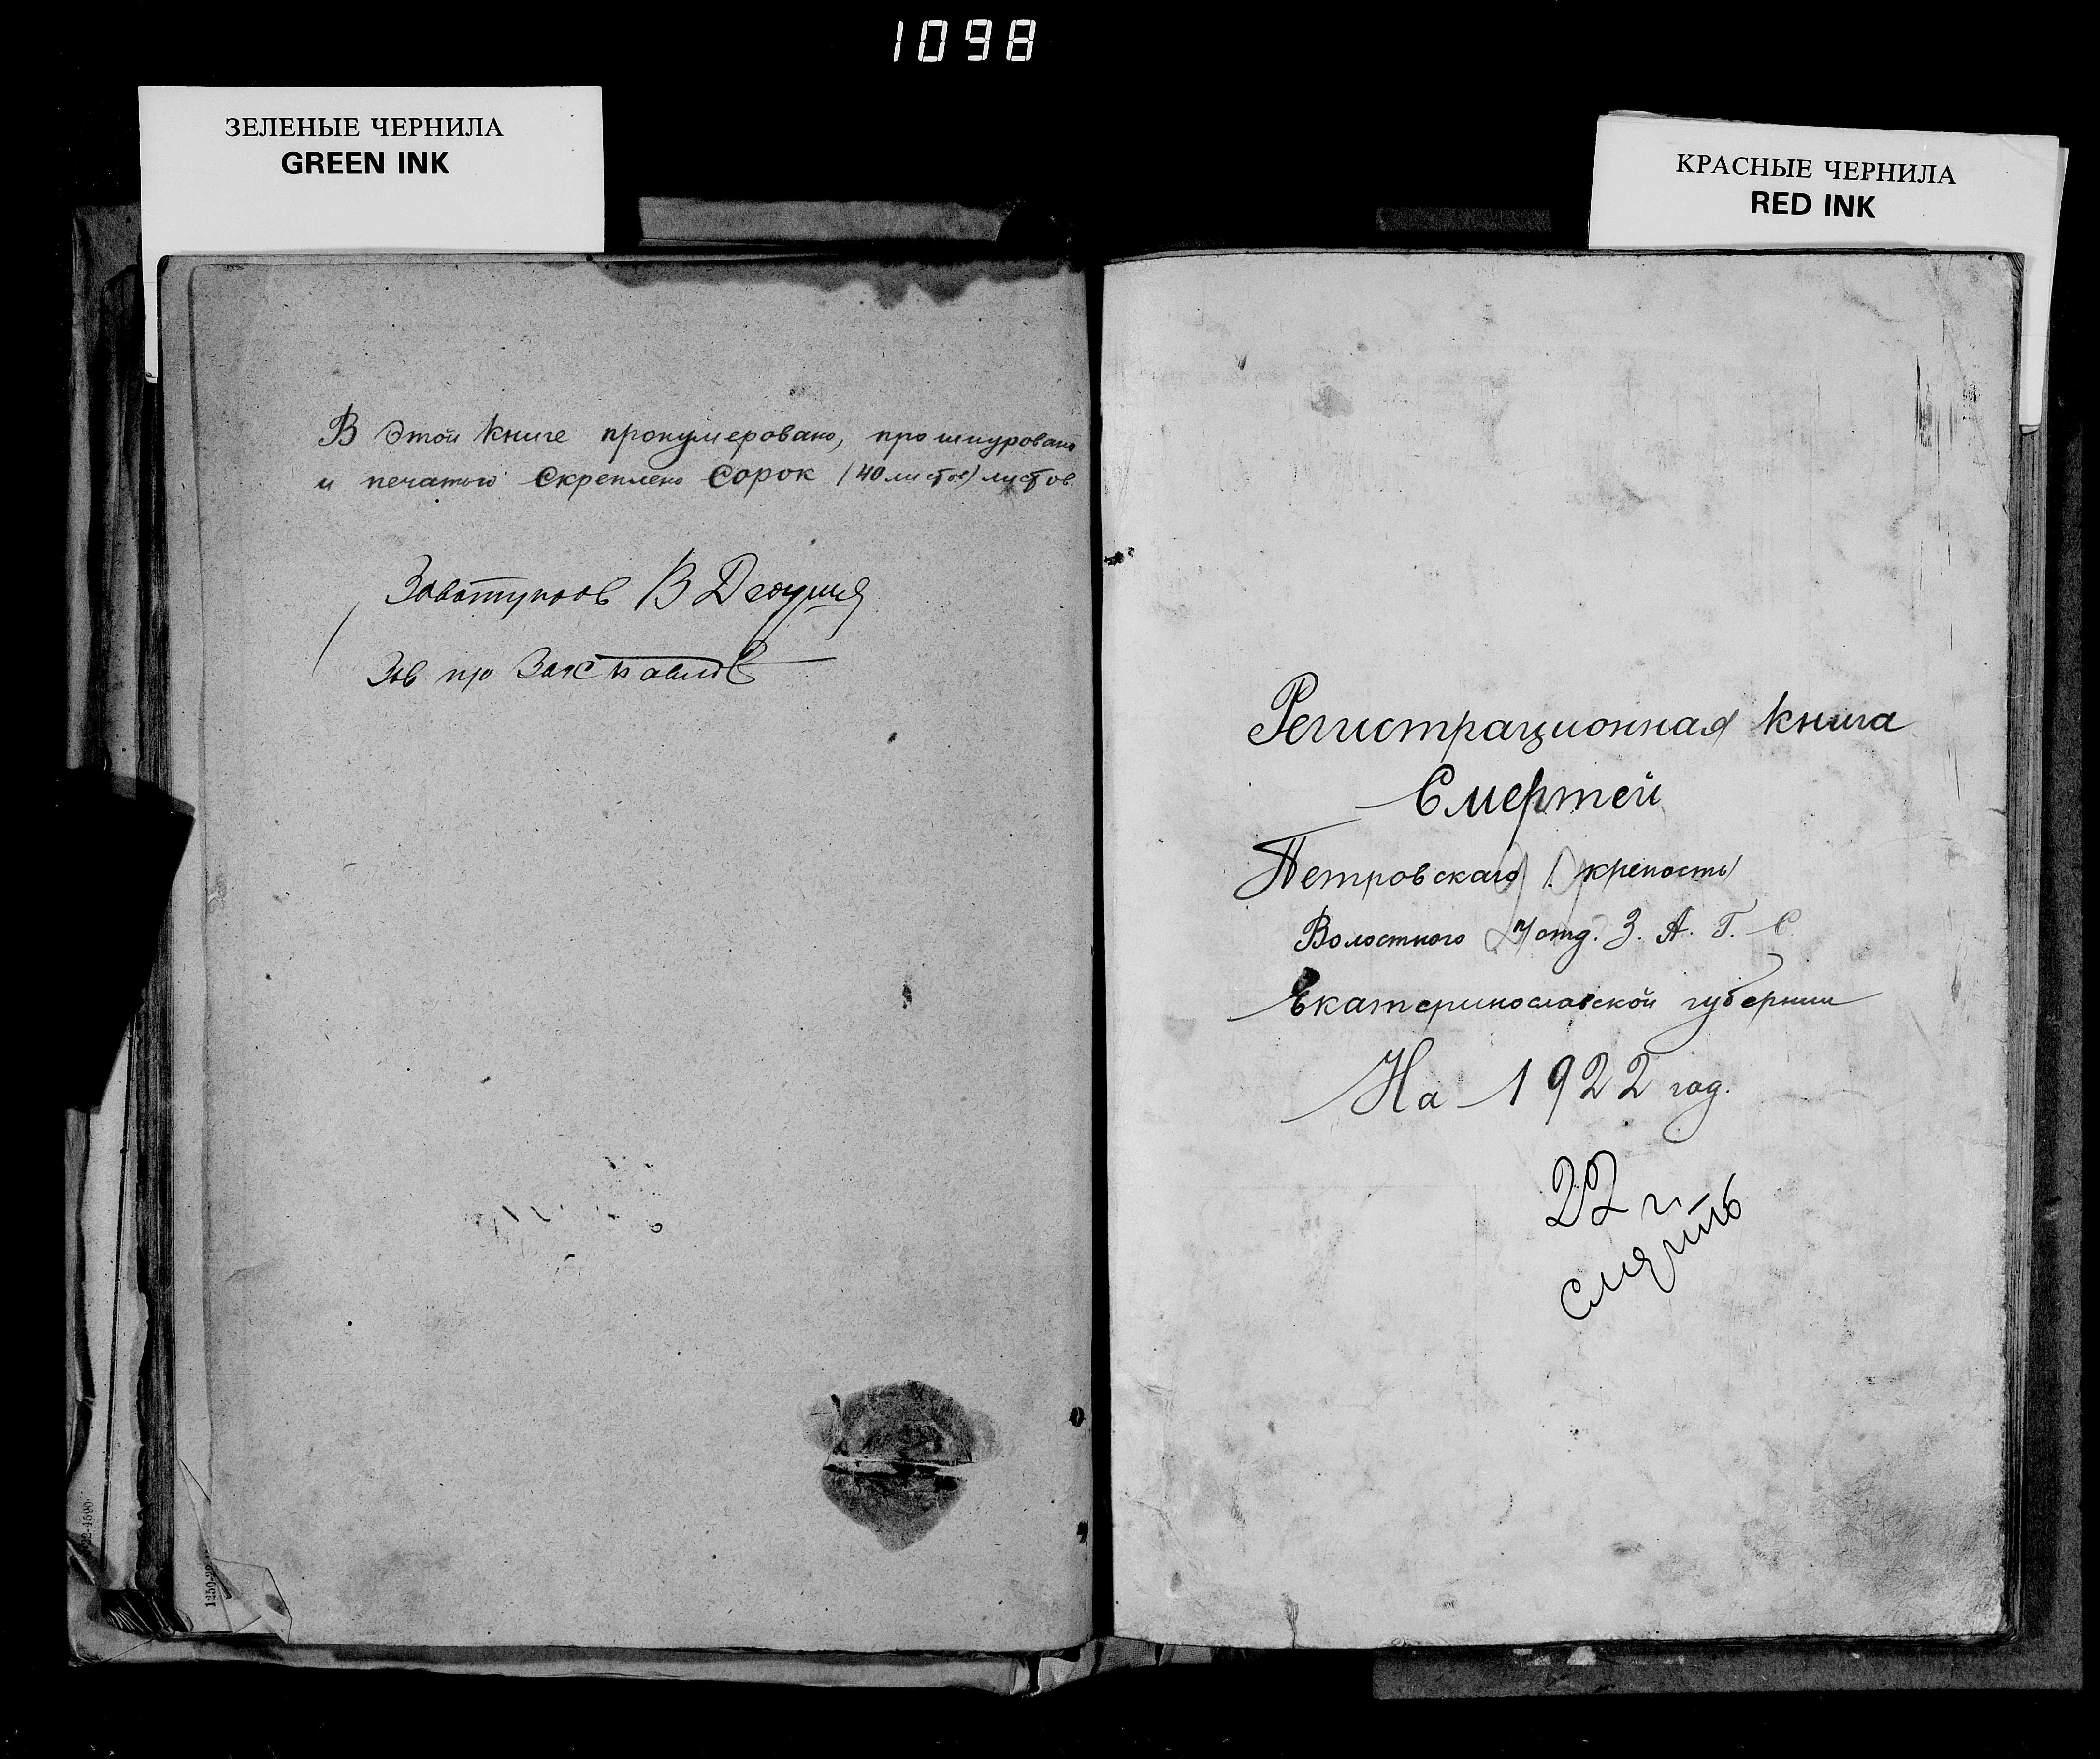 1098
ЗЕЛЕНЫЕ ЧЕРНИЛА
GREEN INK
В этой книге пронумеровано, прошнуровано
и печатью скреплено сорок (40 листов) листов.
КРАСНЫЕ ЧЕРНИЛА
RED INK
Регистрационная книга
Смертей
Петровскаго / крепость/
Волостного п/отд. З. А. Г. С.
Екатеринославской губернии
На 1922 год.
22 г.